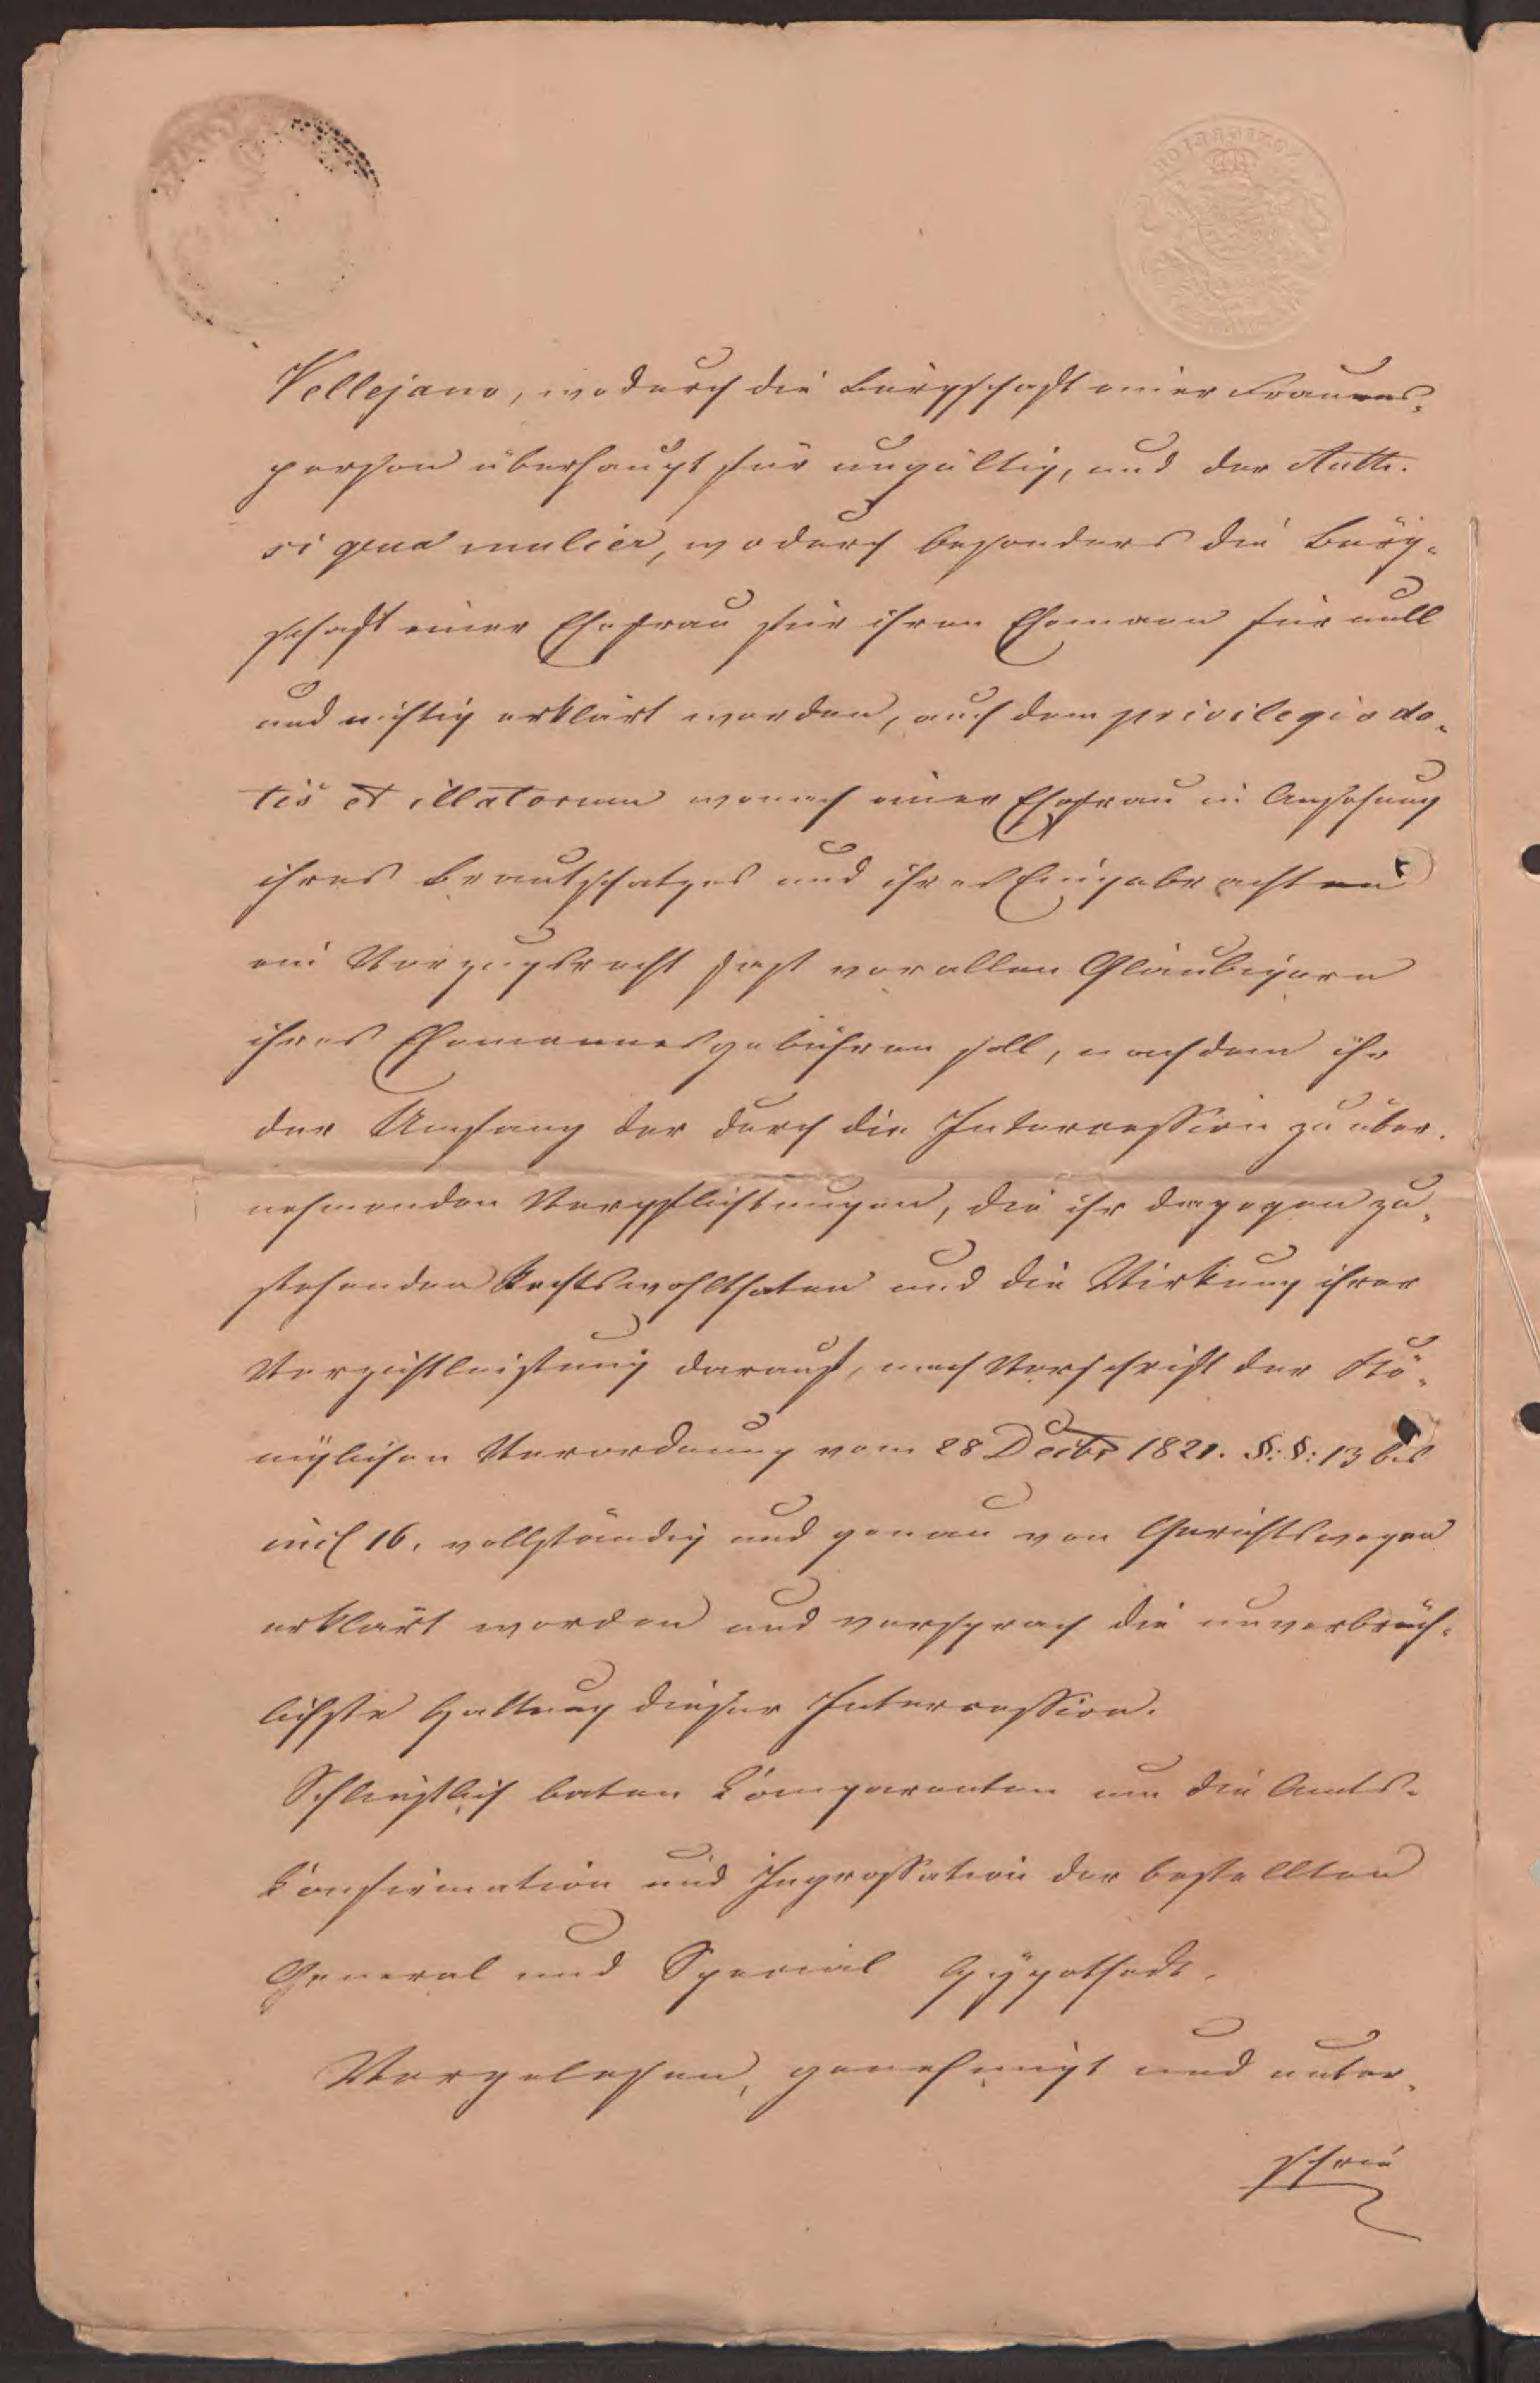 Vellejano, wodurch die Bürgschaft einer Frauens-
person überhaupt für ungültig, und der Auth.
si qua mulier, wodurch besonders die Bürg-
schaft einer Ehefrau für ihren Ehemann für null
und nichtig erklärt worden, auch dem privilegio do-
tis et illatorum wonach einer Ehefrau in Ansehung
ihres Brautschatzes und ihres Eingebrachten
ein Vorzugsrecht fast vor allen Gläubigern
ihres Ehemannes gebühren soll, nachdem ihr
der Umfang der durch die Intercession zu über-
nehmenden Verpflichtungen, die ihr dagegen zu-
stehenden Rechtswohlthaten und die Wirkung ihrer
Verzichtleistung darauf, nach Vorschrift der Kö-
niglichen Verordnung vom 28 Decbr 1821. §: §: 13 bis
incl 16. vollständig und genau von Gerichtswegen
erklärt worden und versprach die unverbrüch-
lichste Haltung dieser Intercession.
Schließlich baten Comparenten um die Amts-
Confirmation und Ingrossation der bestellten
General und Special Hypothek.
Vorgelesen, genehmigt und unter-
schrie